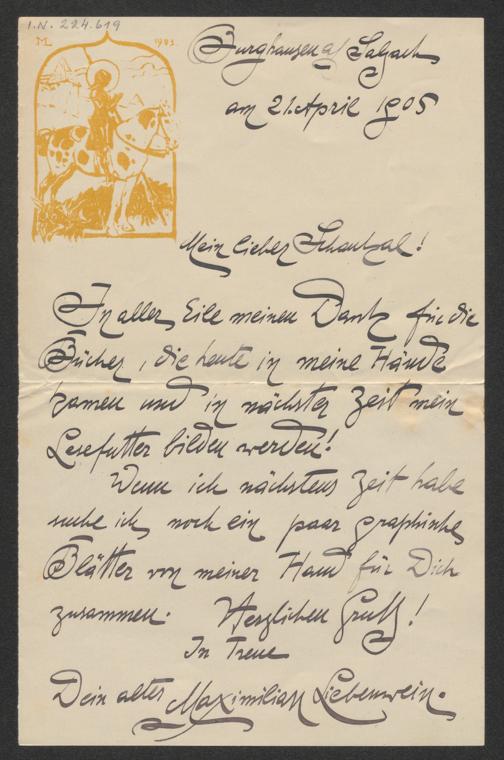 I.N. 224.619
ML 1903.
Burghausen a/ Salzach
am 21. April 1905
Mein lieber Schaukal!
In aller Eile meinen Dank für die
Bücher, die heute in meine Hände
kamen und in nächster Zeit mein
Lesefutter bilden werden!
Wenn ich nächstens Zeit habe
suche ich noch ein paar graphische
Blätter von meiner Hand für Dich
zusammen. Herzlichen Gruß!
In Treue
Dein alter Maximilian Liebenwein.